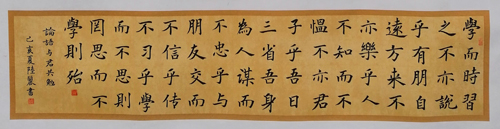 學而時習
之不亦說
乎有朋自
遠方來不
亦樂乎人
不知而不
愠不亦君
子乎吾日
三省吾身
為人謀而
不忠乎与
朋友交而
不信乎传
不習乎學
而不思則
罔思而不
學則殆
論語与君共勉
己亥夏陸書